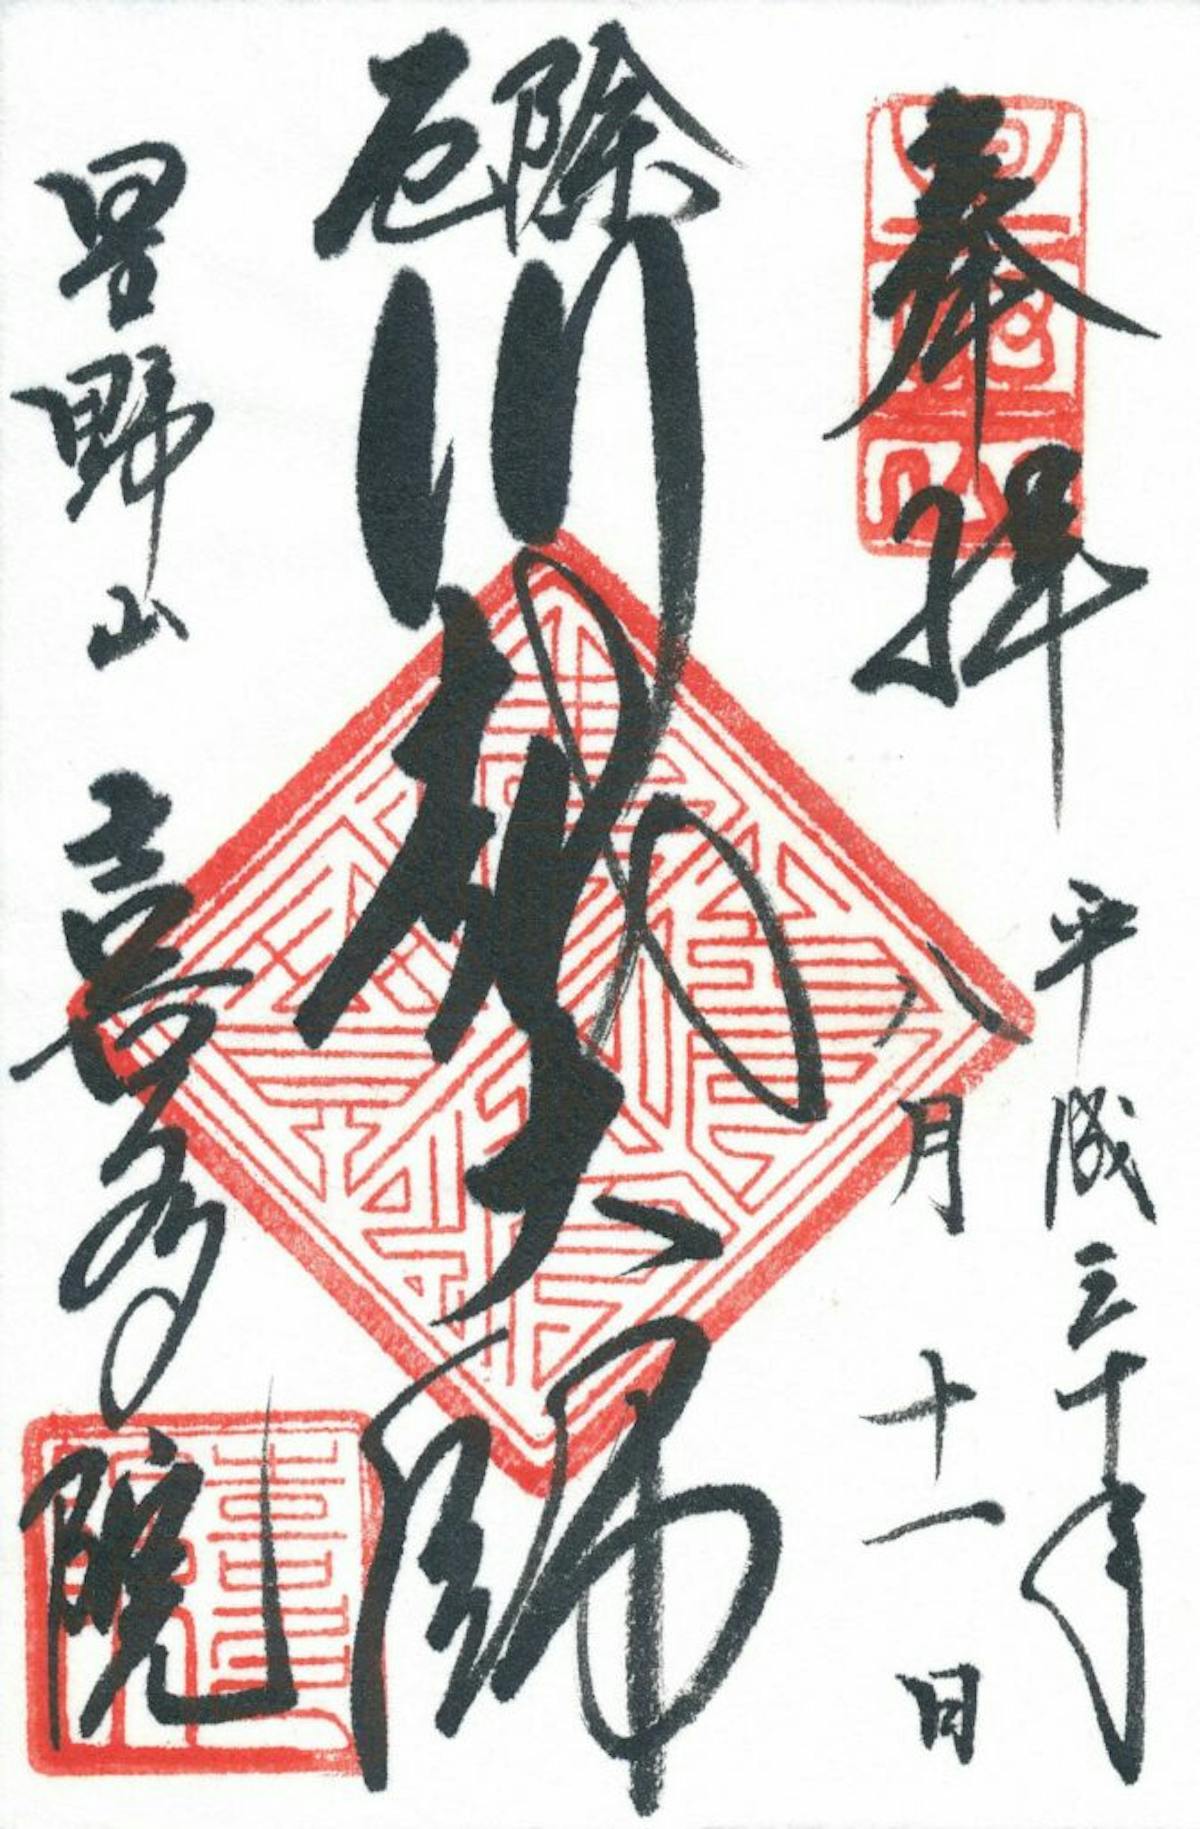 奉拝
平成三十年
八月十一日
厄除
川越大師
星野山 喜多院